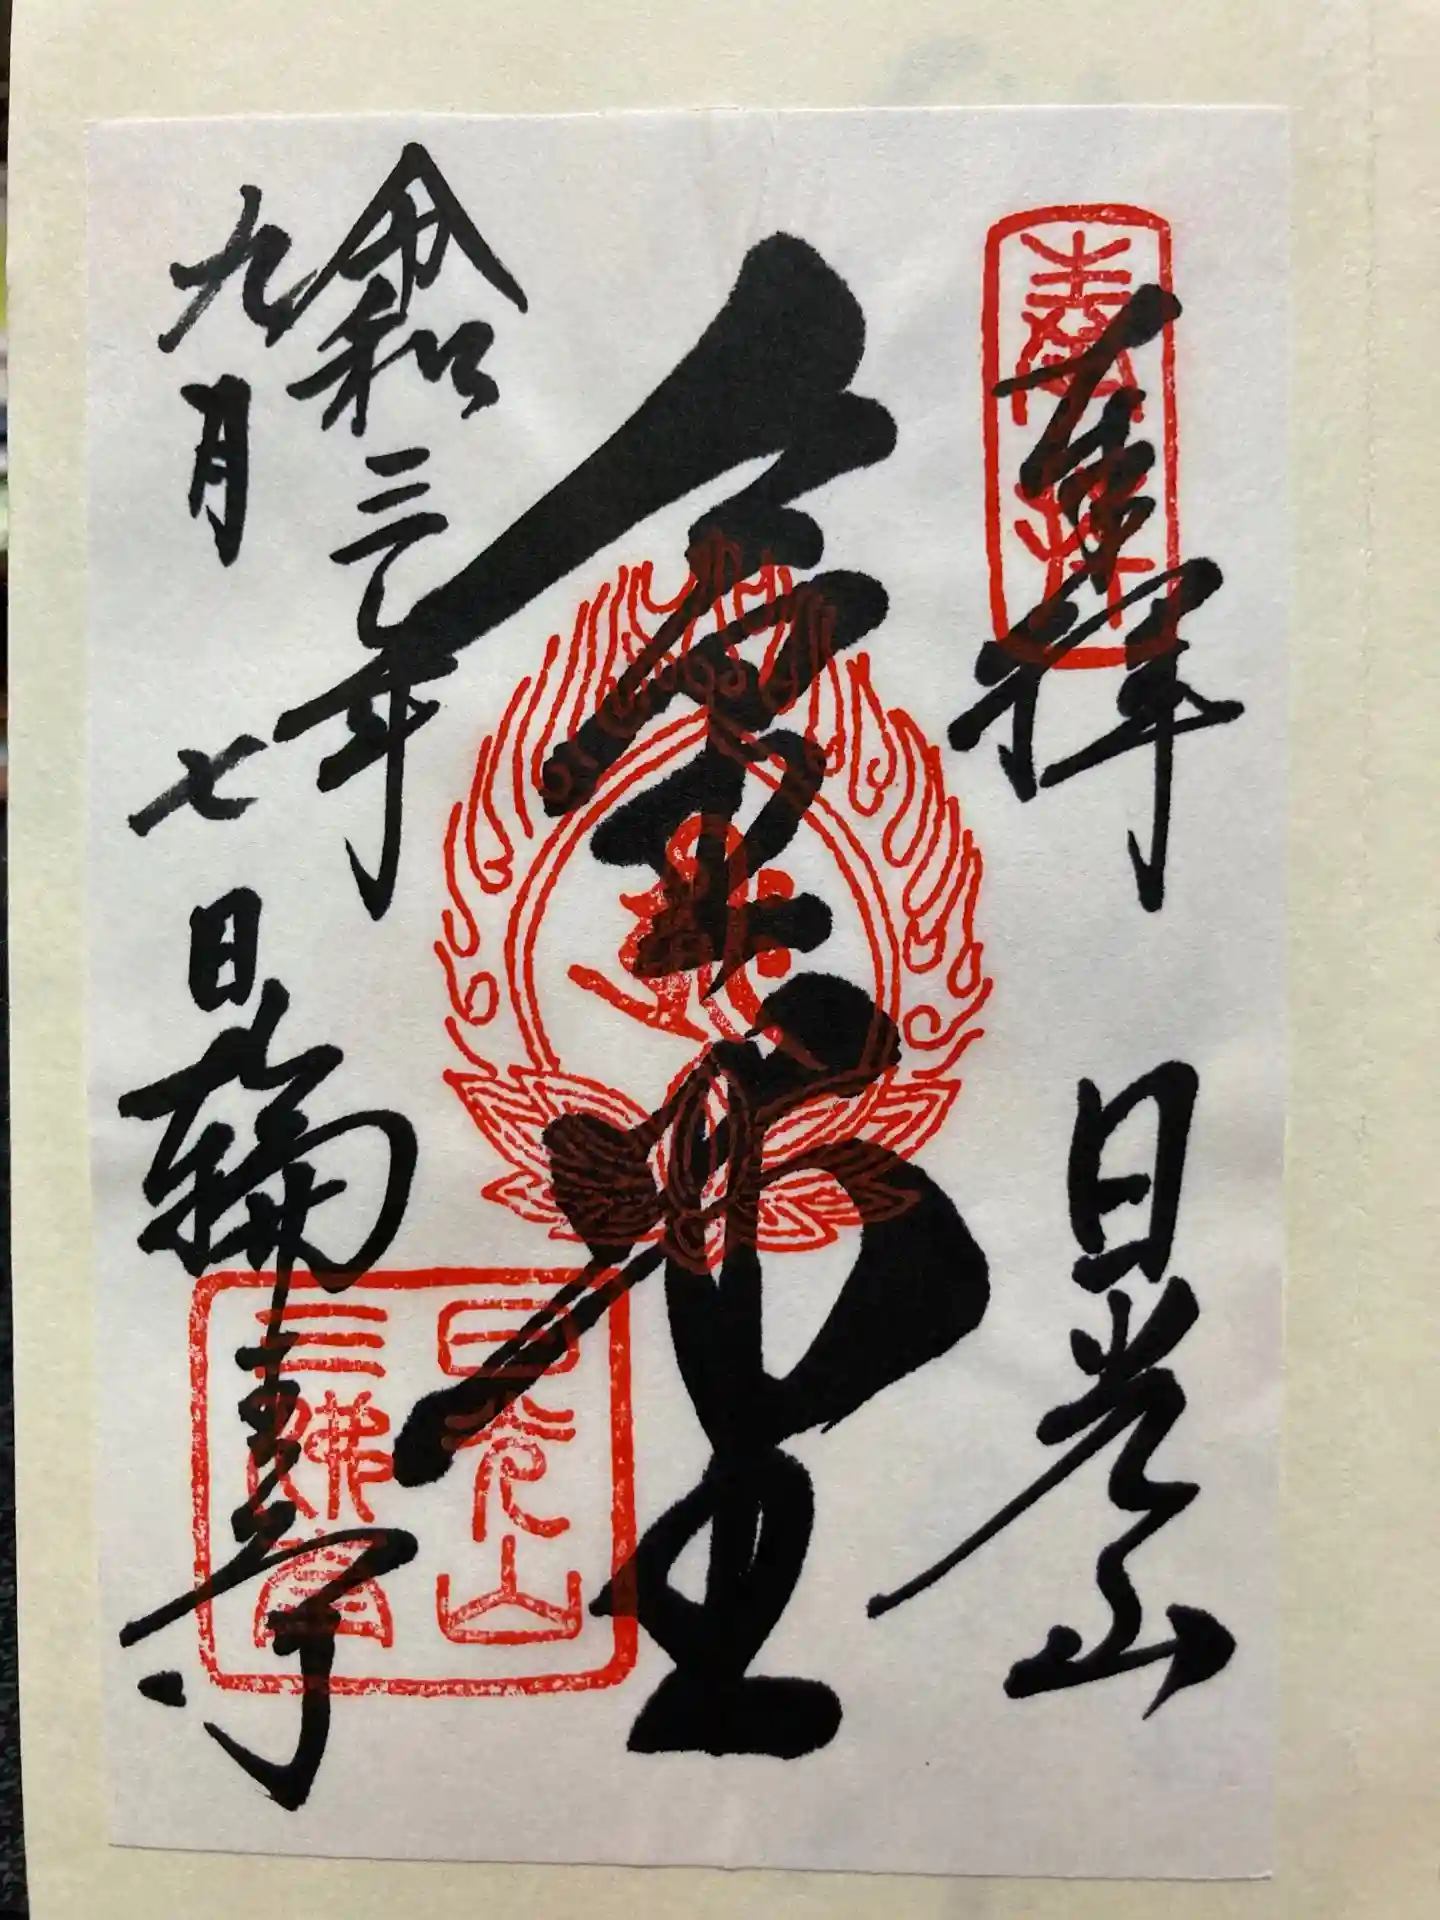 奉拝
奉拝 日光山
金堂
日光山
三佛堂
令和三年
九月七日 輪王寺